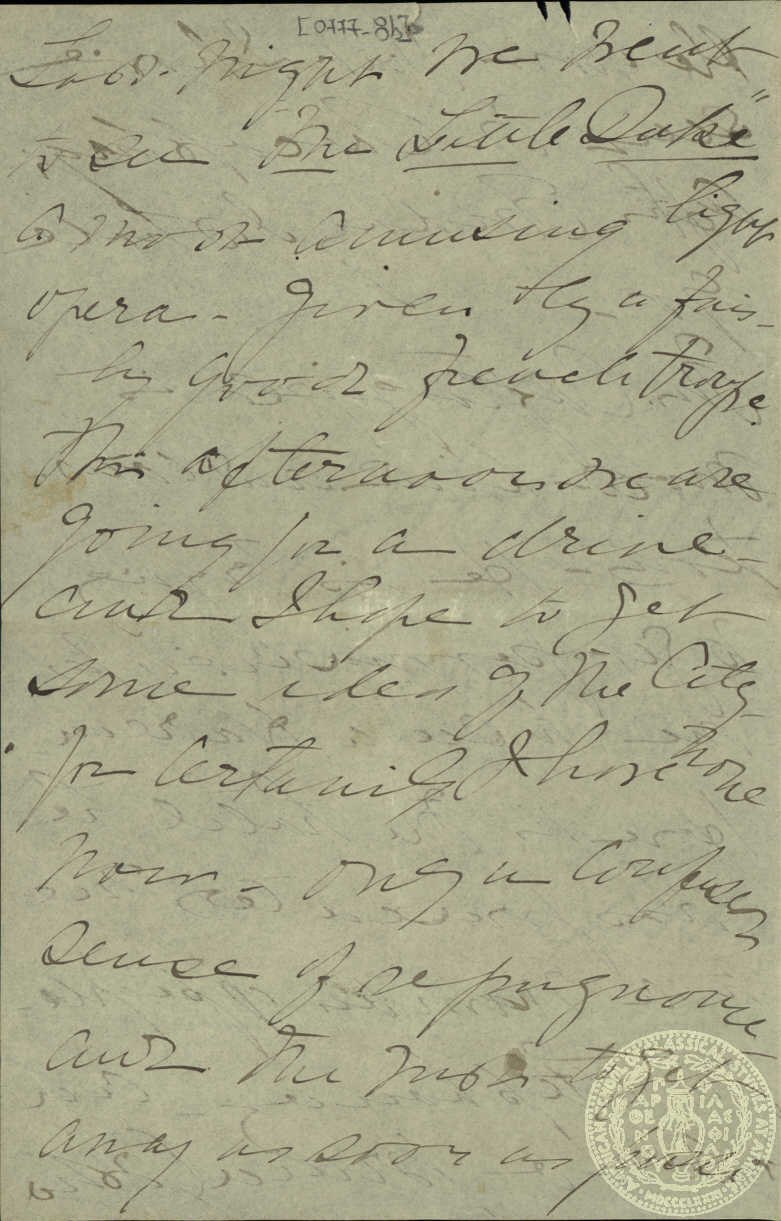 Last night we went
to see The Little Duke"
a most amusing light
opera - given by a fair-
ly good french troupe.
This afternoon we are
going for a drive -
and I hope to get
some idea of the City -
for certainly I have none
now - only a confused
sense of repugnance
and the
away as soon as possi